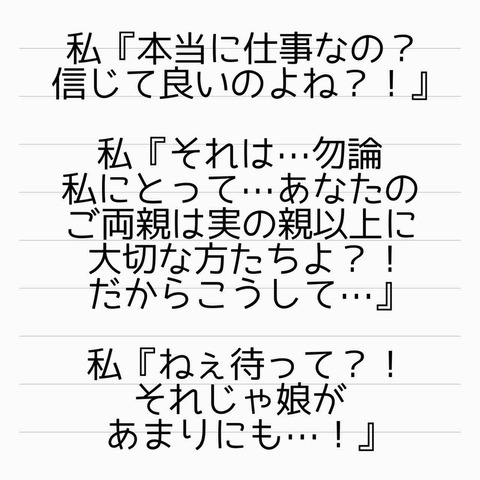 私『本当に仕事なの？
信じて良いのよね？！』
私『それは…勿論
私にとって…あなたの
ご両親は実の親以上に
大切な方たちよ？！
だからこうして…』
私『ねぇ待って？！
それじゃ娘が
あまりにも…！』